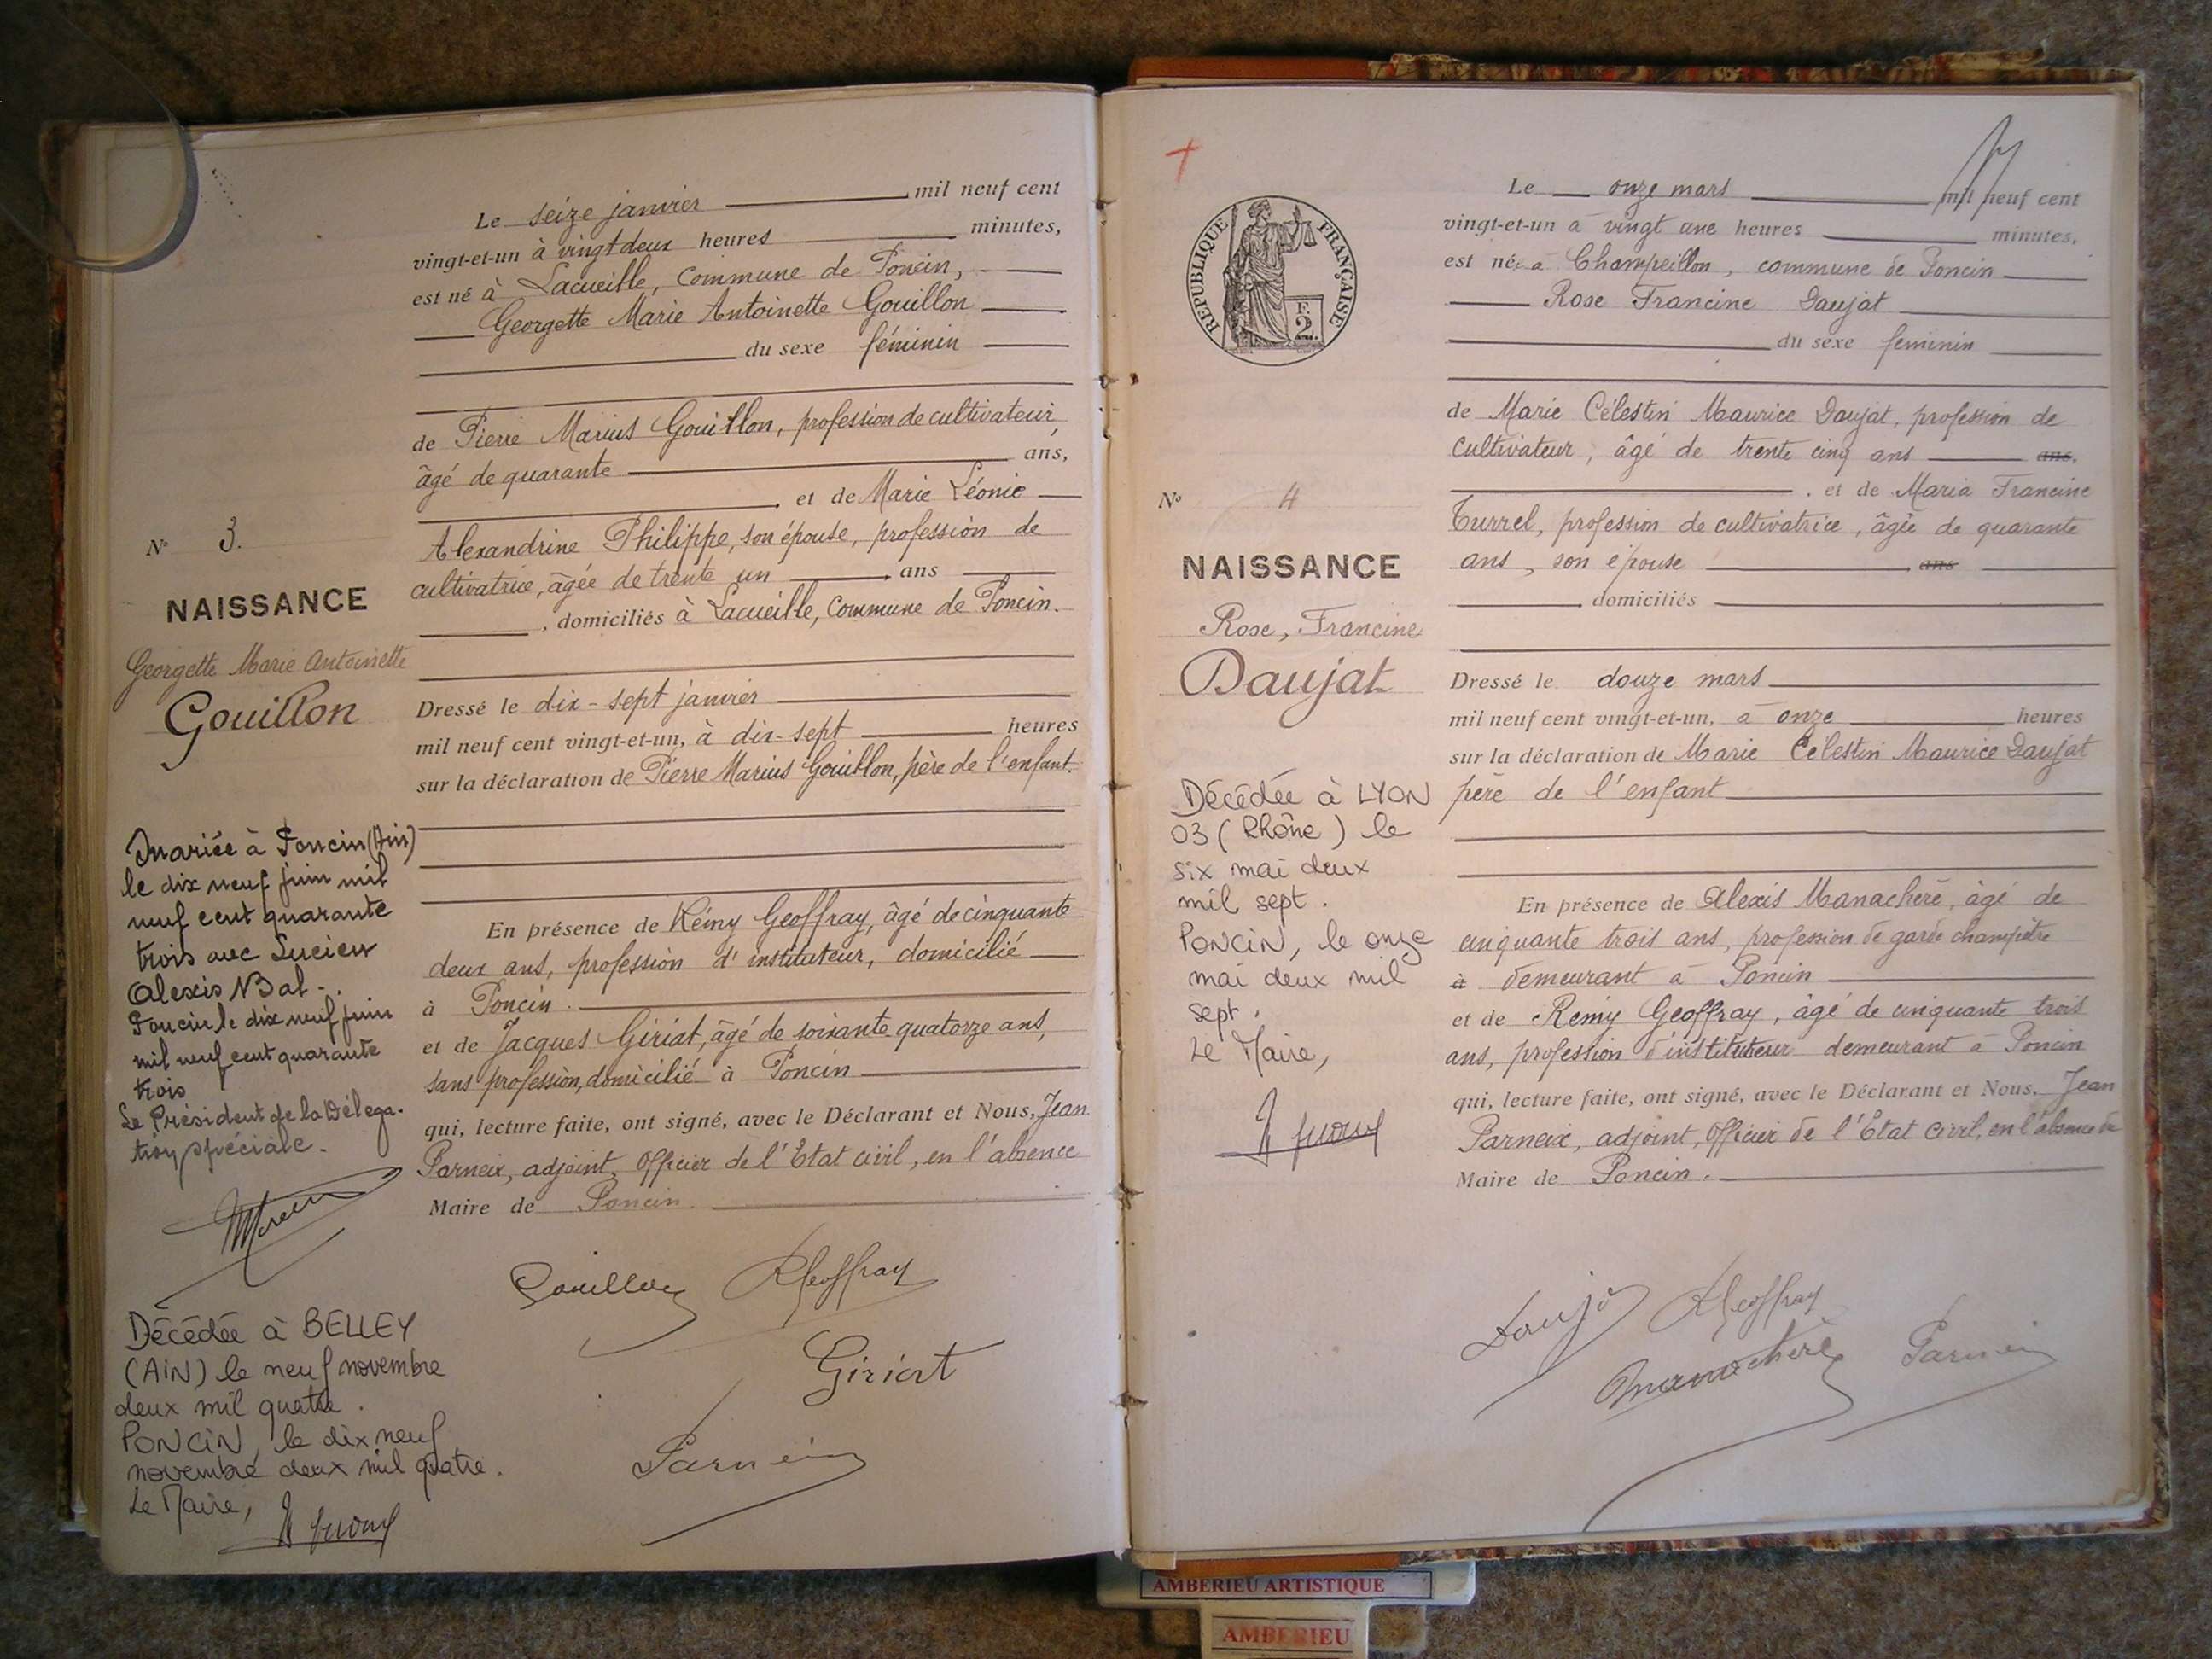 Le seize janvier mil neuf cent
vingt-et-un à vingt deux heures minutes,
est né à Lacueille, commune de Poncin,
Georgette Marie Antoinette Gouillon
du sexe féminin
de Pierre Marius Gouillon, profession de cultivateur,
âgé de quarante ans,
, et de Marie Léonie
Alexandrine Philippe, son épouse, profession de
cultivatrice, âgée de trente un ans
, domiciliés à Lacueille, commune de Poncin.
Dressé le dix-sept janvier
mil neuf cent vingt-et-un, à dix-sept heures
sur la déclaration de Pierre Marius Gouillon, père de l'enfant.
En présence de Rémy Geoffray, âgé de cinquante
deux ans, profession d'instituteur, domicilié
à Poncin.
et de Jacques Giriat, âgé de soixante quatorze ans,
sans profession, domicilié à Poncin
qui, lecture faite, ont signé, avec le Déclarant et Nous, Jean
Parneix, adjoint, Officier de l'Etat civil, en l'absence
Maire de Poncin.
Gouillon RGeoffray
Giriat
Parneix
N° 3.
NAISSANCE
Georgette Marie Antoinette
Gouillon
Mariée à Poncin (Ain)
le dix neuf juin mil
neuf cent quarante
trois avec Lucien
Alexis Bal.
Poncin le dix neuf juin
mil neuf cent quarante
trois
Le Président de la Déléga-
tion spéciale.
Décédée à BELLEY
(AIN) le neuf novembre
deux mil quatre.
PONCIN, le dix neuf
novembre deux mil quatre.
Le Maire,
REPUBLIQUE FRANÇAISE
F.
2
N° 4
NAISSANCE
Rose, Francine
Daujat
Décédée à LYON
03 (Rhône) le
six mai deux
mil sept.
PONCIN, le onze
mai deux mil
sept.
Le Maire,
Le onze mars mil neuf cent
vingt-et-un à vingt une heures minutes,
est née à Champeillon, commune de Poncin
Rose Francine Daujat
du sexe féminin
de Marie Célestin Maurice Daujat, profession de
cultivateur, âgé de trente cinq ans ans,
, et de Maria Francine
Turrel, profession de cultivatrice, âgée de quarante
ans, son épouse ans
domiciliés
Dressé le douze mars
mil neuf cent vingt-et-un, à onze heures
sur la déclaration de Marie Célestin Maurice Daujat
père de l'enfant
En présence de Alexis Manachère, âgé de
cinquante trois ans, profession de garde champêtre
à demeurant à Poncin
et de Rémy Geoffray, âgé de cinquante trois
ans, profession d'instituteur demeurant à Poncin
qui, lecture faite, ont signé, avec le Déclarant et Nous, Jean
Parneix, adjoint, Officier de l'Etat civil, en l'absence du
Maire de Poncin.
Daujat RGeoffray
Manachère Parneix
AMBERIEU ARTISTIQUE
AMBERIEU